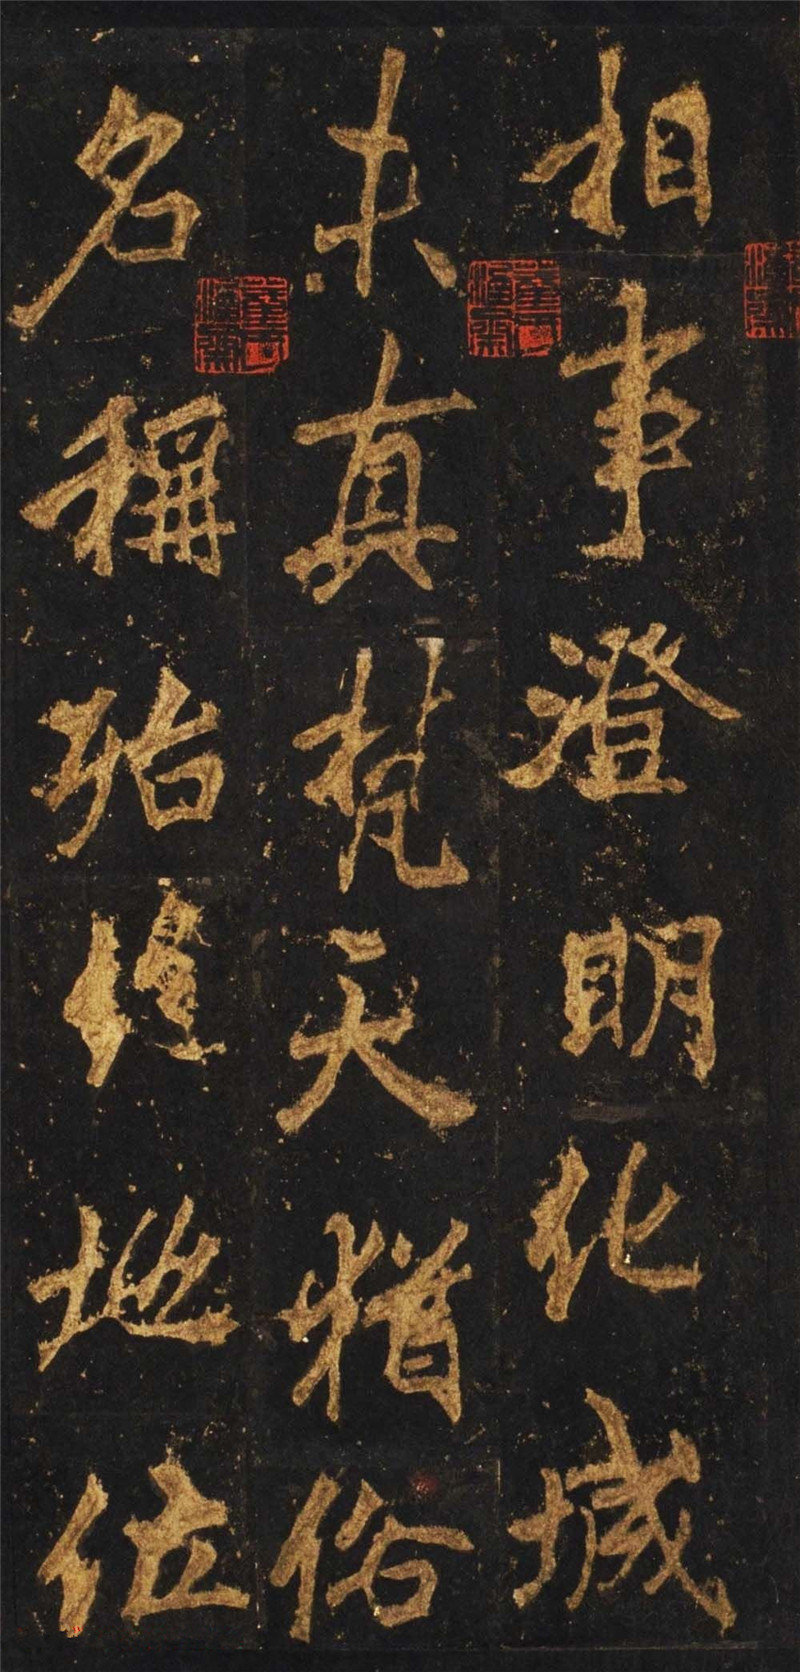 相事澄明化城
未真梵天猶俗
名稱殆地位